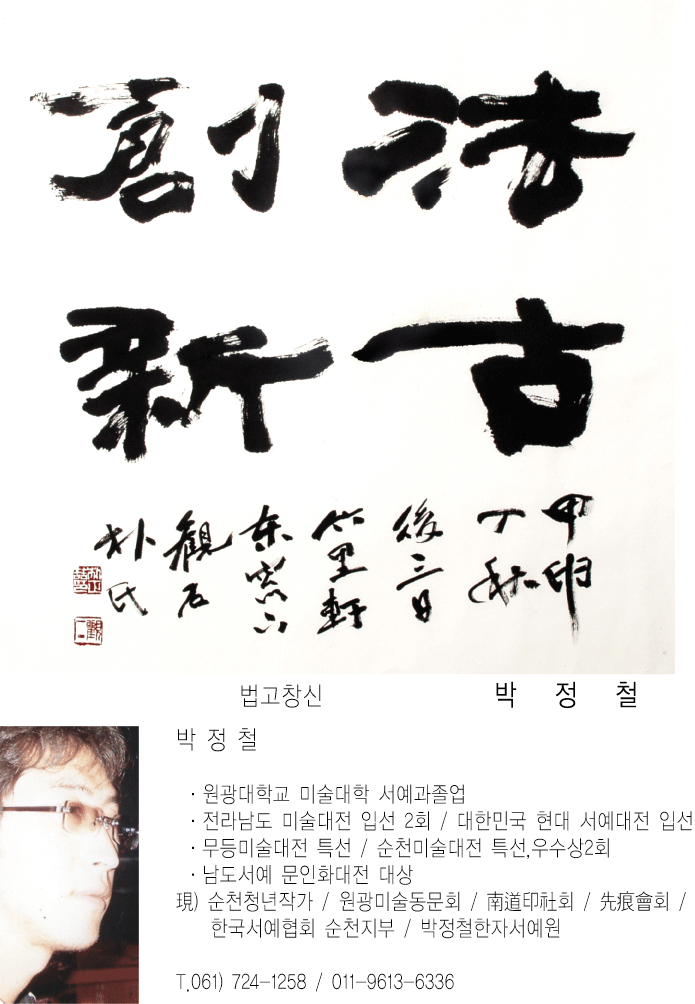 法古
創新
後三日
竹里軒
東窓下
觀石
朴氏
법고창신
박 정 철
박 정 철
· 원광대학교 미술대학 서예과졸업
· 전라남도 미술대전 입선 2회 / 대한민국 현대 서예대전 입선
· 무등미술대전 특선 / 순천미술대전 특선,우수상2회
· 남도서예 문인화대전 대상
現) 순천청년작가 / 원광미술동문회 / 南道印社회 / 先痕會회 /
한국서예협회 순천지부 / 박정철한자서예원
T.061) 724-1258 / 011-9613-6336